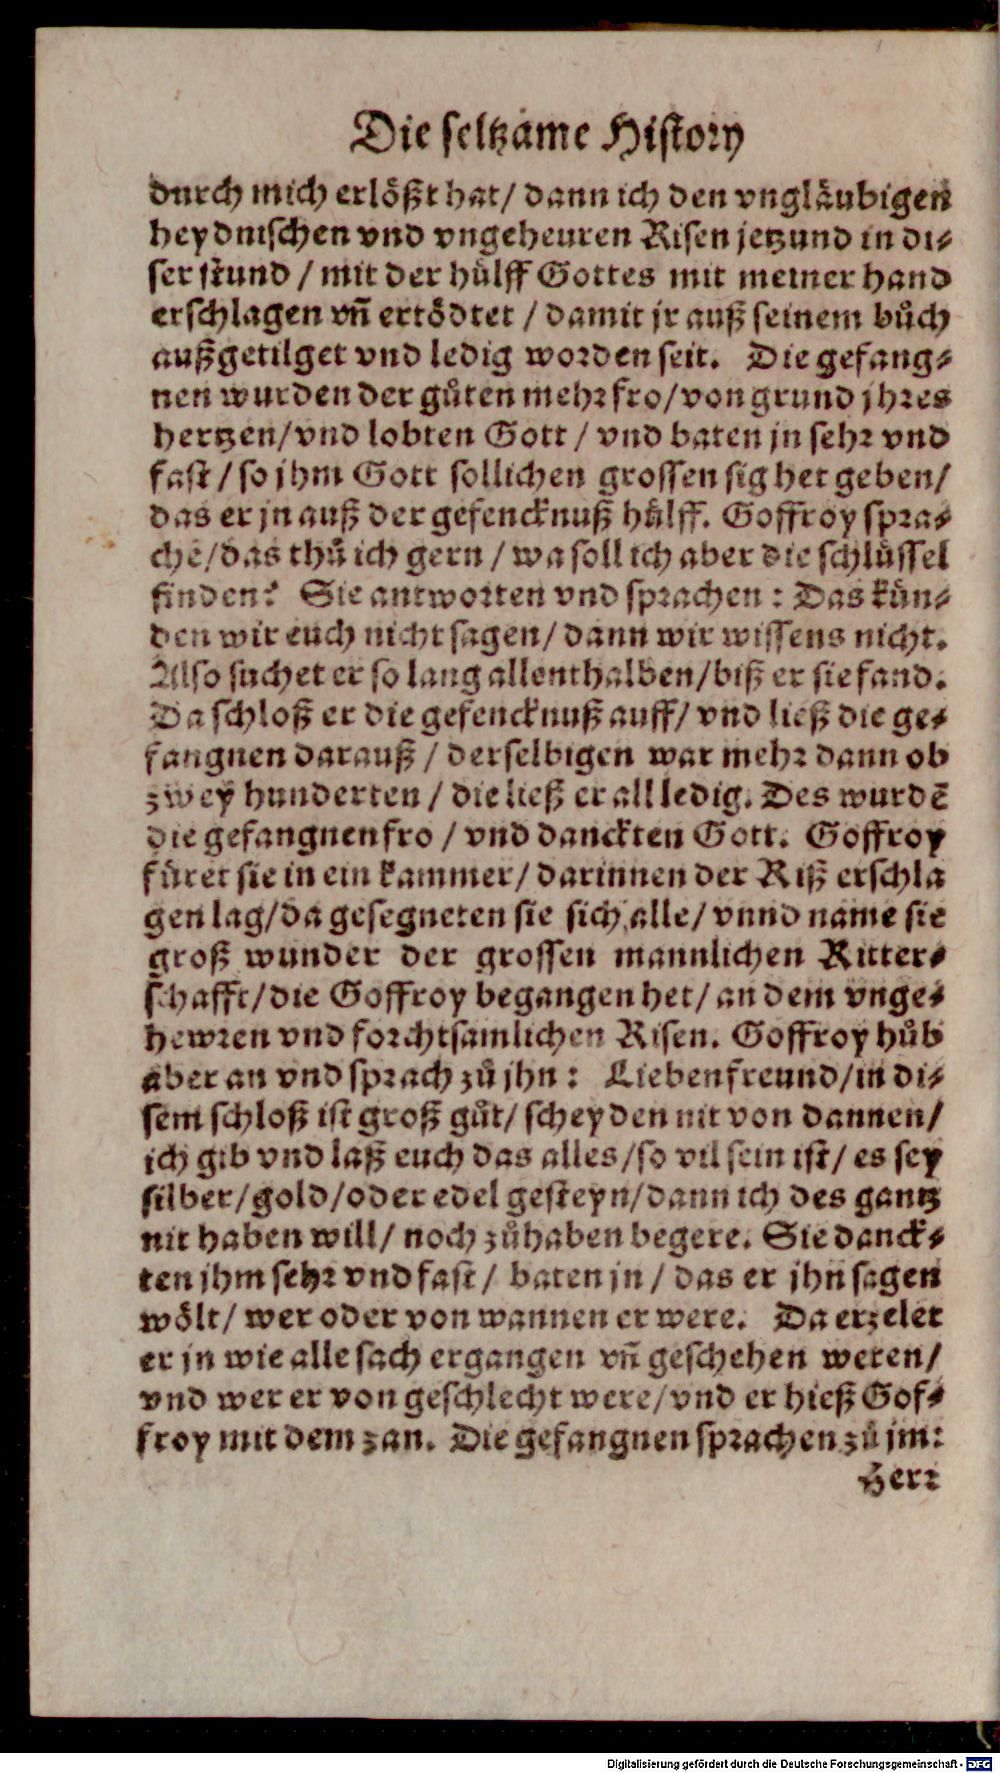 Die seltzame History
durch mich erlößt hat/ dann ich den vngläubigen
heydnischen vnd vngeheuren Risen jetzund in di⸗
ser stund / mit der hülff Gottes mit meiner hand
erschlagen vñ ertödtet / damit jr auß seinem bůch
außgetilget vnd ledig worden seit. Die gefang⸗
nen wurden der gůten mehr fro/ von grund jhres
hertzen/ vnd lobten Gott / vnd baten jn sehr vnd
fast / so jhm Gott sollichen grossen sig het geben/
das er jn auß der gefencknuß hülff. Goffroy spra⸗
chẽ/ das thů ich gern / wa soll ich aber die schlüssel
finden? Sie antworten vnd sprachen : Das kün⸗
den wir euch nicht sagen/ dann wir wissens nicht.
Also suchet er so lang allenthalben/ biß er sie fand.
Da schloß er die gefencknuß auff/ vnd ließ die ge⸗
fangnen darauß / derselbigen war mehr dann ob
zwey hunderten / die ließ er all ledig. Des wurdẽ
die gefangnen fro / vnd danckten Gott. Goffroy
fůret sie in ein kammer/ darinnen der Riß erschla
gen lag/ da gesegneten sie sich alle/ vnnd name sie
groß wunder der grossen mannlichen Ritter⸗
schafft/ die Goffroy begangen het/ an dem vnge⸗
hewren vnd forchtsamlichen Risen. Goffroy hůb
aber an vnd sprach zů jhn : Lieben freund/ in di⸗
sem schloß ist groß gůt/ scheyden nit von dannen/
ich gib vnd laß euch das alles/ so vil sein ist/ es sey
silber/ gold/ oder edel gesteyn/ dann ich des gantz
nit haben will/ noch zůhaben begere. Sie danck⸗
ten jhm sehr vnd fast / baten jn / das er jhn sagen
wölt/ wer oder von wannen er were. Da erzelet
er jn wie alle sach ergangen vñ geschehen weren/
vnd wer er von geschlecht were/ vnd er hieß Gof⸗
froy mit dem zan. Die gefangnen sprachen zů jm:
Herr
Digitalisierung gefördert durch die Deutsche Forschungsgemeinschaft - DFG